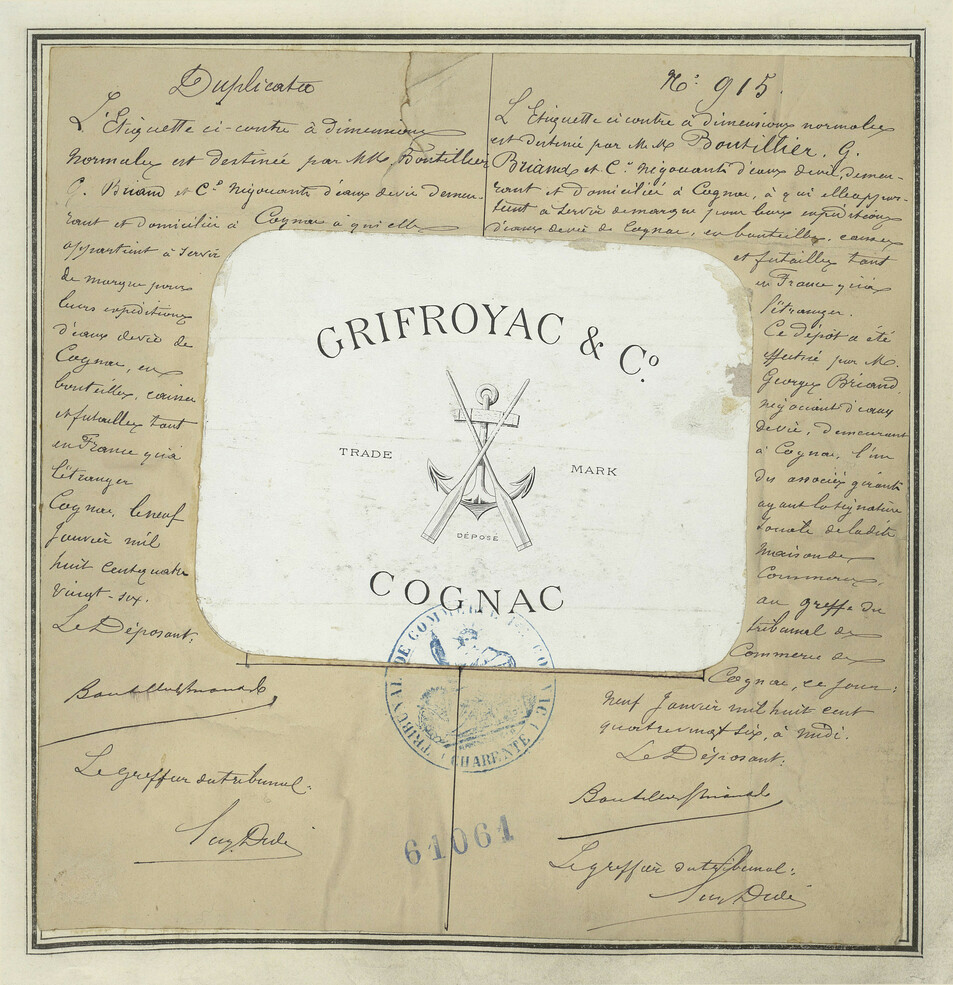 Duplicata
L'Etiquette ci-contre à dimensions
normales est destinée par MM. Boutillier
G. Briand et Cie Négociants d'eaux de vie demeu-
rant et domiciliés à Cognac à qui elle
appartient à servir
de marque pour
leurs expéditions
d'eaux de vie de
Cognac, en
bouteilles, caisses
et futailles tant
en France qu'à
l'étranger
Cognac, le neuf
Janvier mil
huit cent quatre
vingt-six.
Le Déposant:
Le greffier du tribunal:
No: 915.
L'Etiquette ci contre à dimensions normales
est destinée par M.M. Boutillier, G.
Briand et Cie Négociants d'eaux de vie, demeu-
rant et domiciliés à Cognac, à qui elle appar-
tient à servir de marque pour leurs expéditions
d'eaux de vie de Cognac, en bouteilles, caisses
et futailles tant
en France qu'à
l'étranger.
Ce dépôt a été
effectué par M.
Georges Briand
négociant d'eaux
de vie, demeurant
à Cognac, l'un
des associés gérants
ayant la signature
sociale de la dite
maison de
Commerce,
au greffe du
tribunal de
Commerce de
Cognac, ce jour:
neuf Janvier mil huit cent
quatrevingt six, à midi.
Le Déposant:
Le greffier du tribunal:
GRIFROYAC & Co.
TRADE MARK
DÉPOSÉ
COGNAC
TRIBUNAL DE COMMERCE DE COGNAC (CHARENTE)
61061